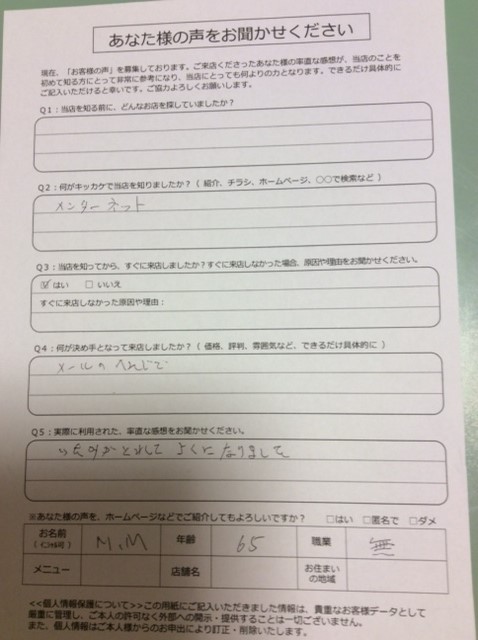 あなた様の声をお聞かせください
現在、「お客様の声」を募集しております。ご来店くださったあなた様の率直な感想が、当店のことを
初めて知る方にとって非常に参考になり、当店にとっても何よりの力となります。できるだけ具体的に
ご記入いただけると幸いです。ご協力よろしくお願いします。
Q1：当店を知る前に、どんなお店を探していましたか？
Q2：何がキッカケで当店を知りましたか？（ 紹介、チラシ、ホームページ、○○で検索など ）
インターネット
Q3：当店を知ってから、すぐに来店しましたか？すぐに来店しなかった場合、原因や理由をお聞かせください。
☑ はい □ いいえ
すぐに来店しなかった原因や理由：
Q4：何が決め手となって来店しましたか？（ 価格、評判、雰囲気など、できるだけ具体的に ）
メールの へんじで
Q5：実際に利用された、率直な感想をお聞かせください。
いたみがとれて よくになりまして
※あなた様の声を、ホームページなどでご紹介してもよろしいですか？ □はい □匿名で □ダメ
お名前 M.M 年齢 65 職業 無
(ｲﾆｼｬﾙ可)
メニュー 店舗名 お住まいの地域
<<個人情報保護について>>この用紙にご記入いただきました情報は、貴重なお客様データとして
厳重に管理し、ご本人の許可なく外部への開示・提供することは一切ございません。
また、個人情報はご本人様からのお申出により訂正・削除いたします。